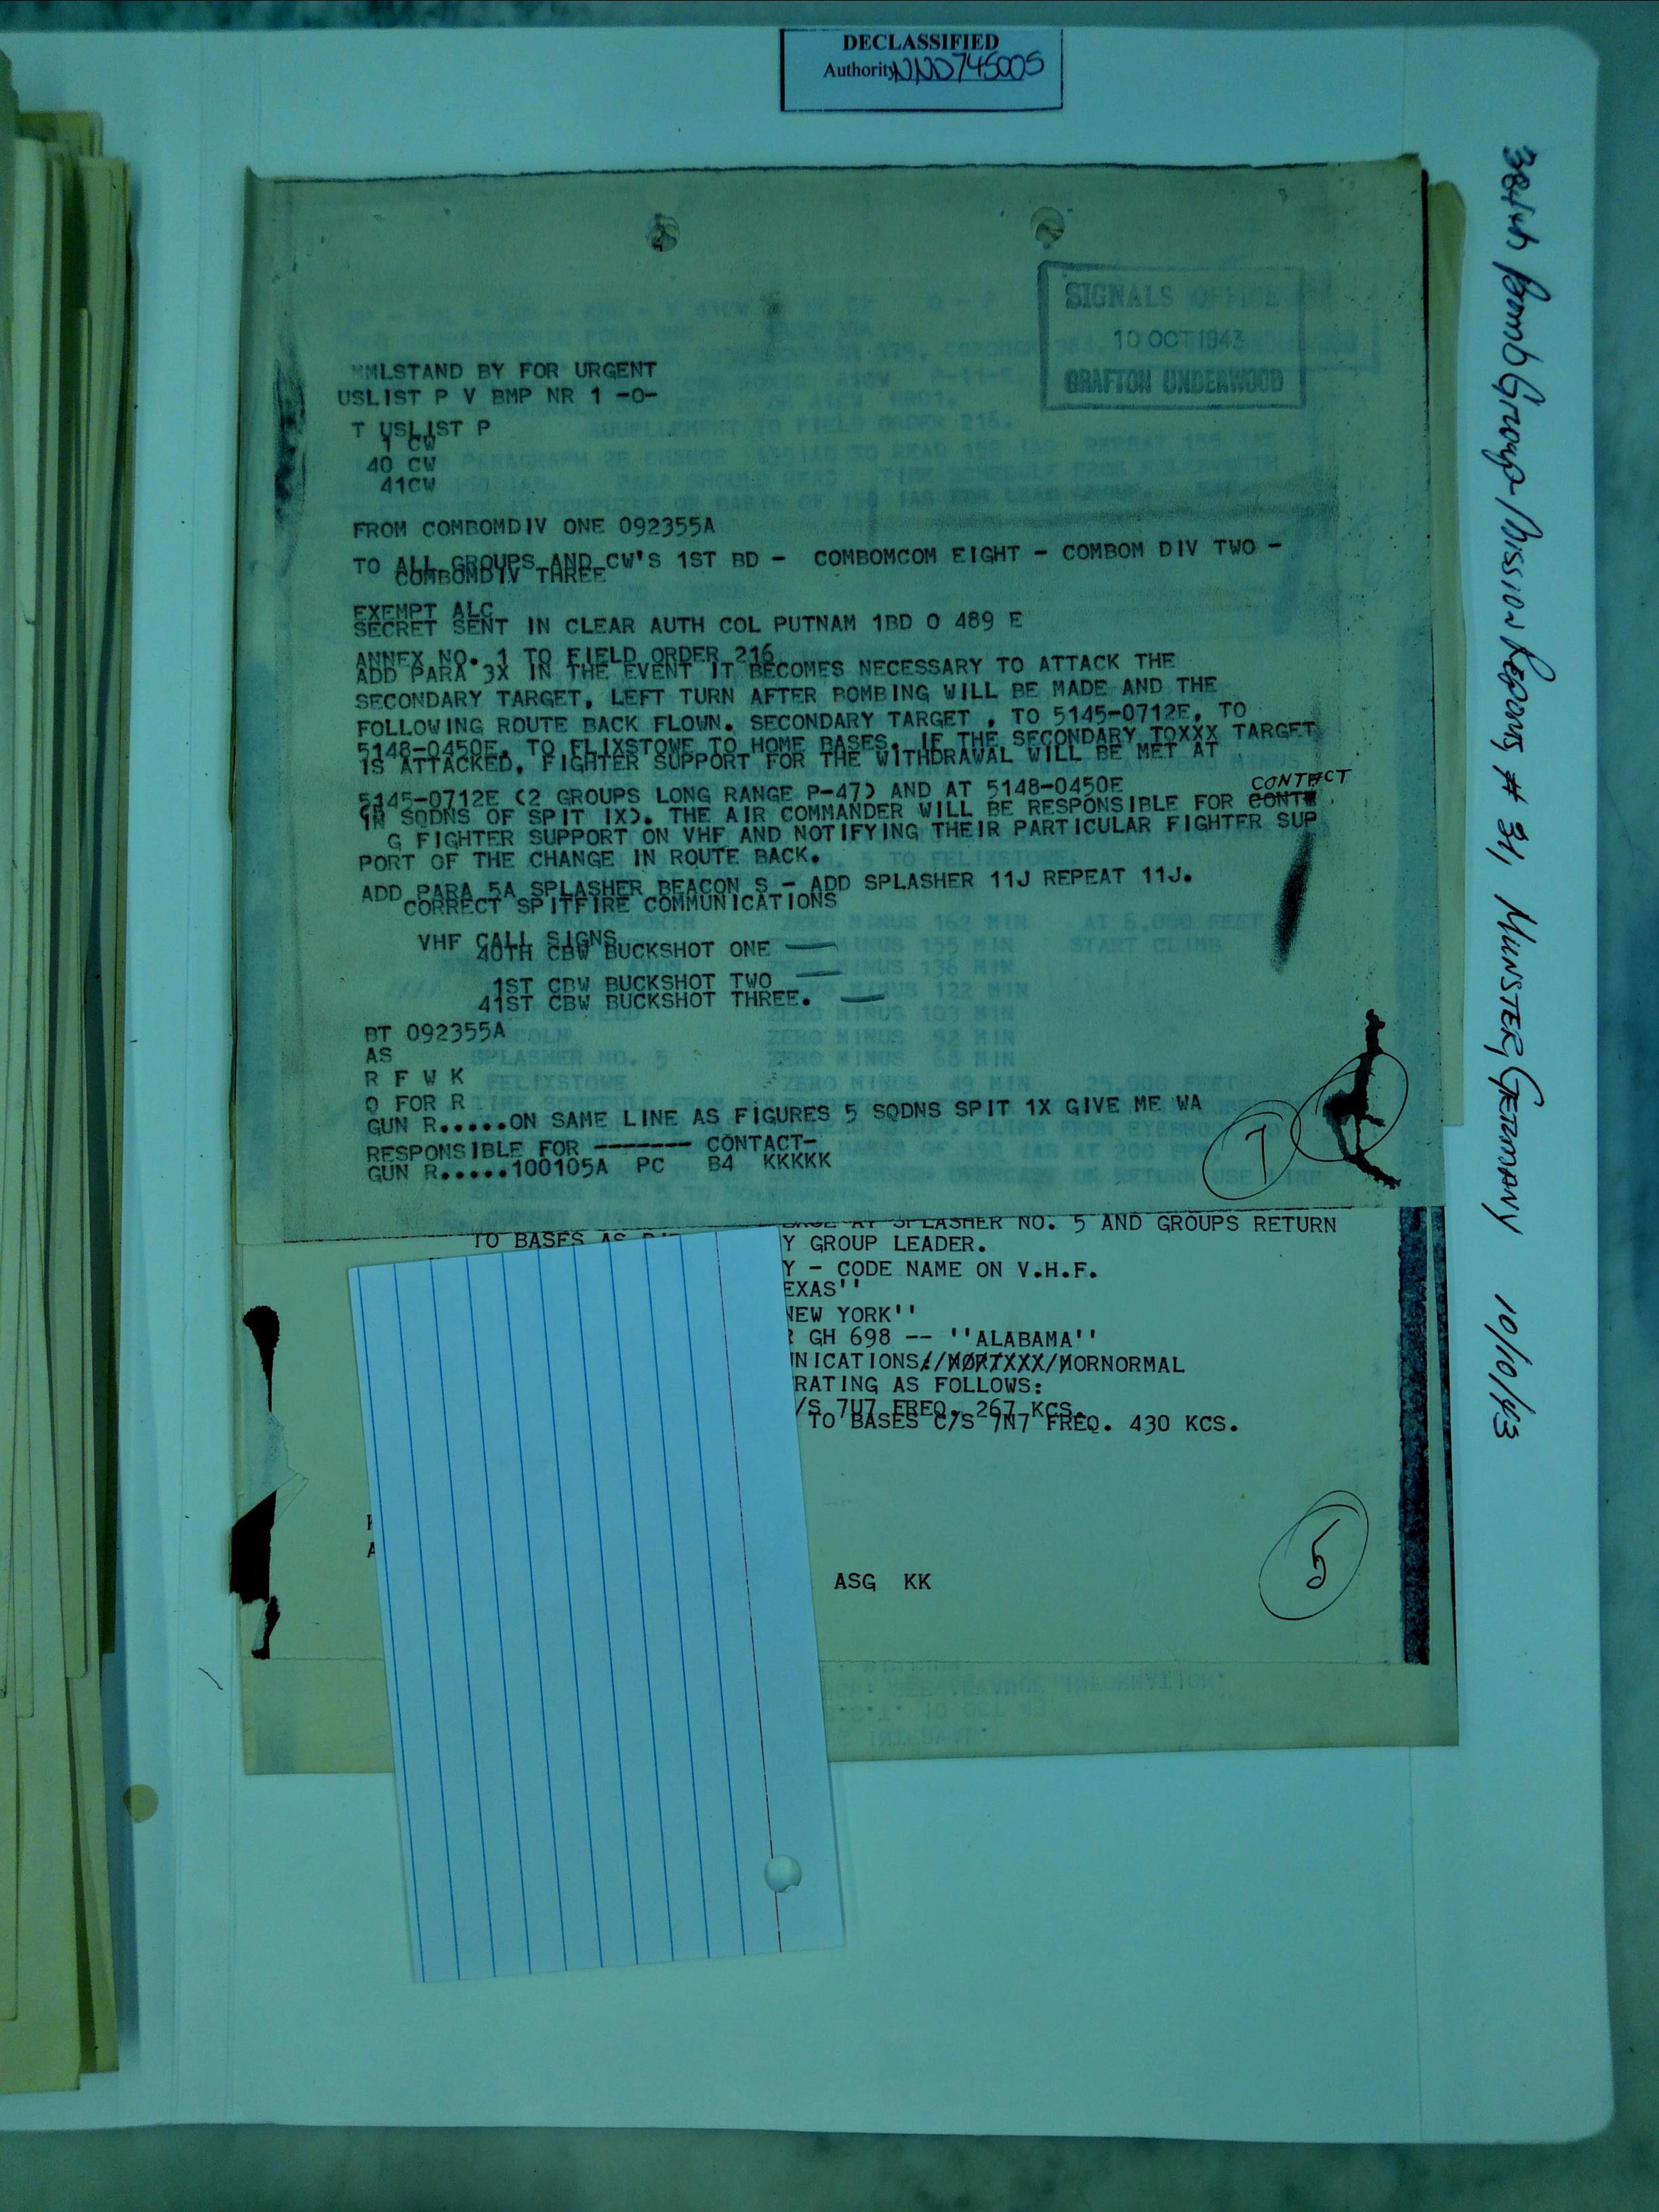 DECLASSIFIED
Authority NND745005
384th Bomb Group, Mission Reports, # 31, MUNSTER, GERMANY 10/10/43
SIGNALS OFFICE
10 OCT 1943
GRAFTON UNDERWOOD
MLSTAND BY FOR URGENT
USLIST P V BMP NR 1 -O-
T USLIST P
1 CW
40 CW
41CW
FROM COMBOMDIV ONE 092355A
TO ALL GROUPS AND CW'S 1ST BD - COMBOMCOM EIGHT - COMBOM DIV TWO -
COMBOMDIV THREE
EXEMPT ALC
SECRET SENT IN CLEAR AUTH COL PUTNAM 1BD O 489 E
ANNEX NO. 1 TO FIELD ORDER 216
ADD PARA 3X IN THE EVENT IT BECOMES NECESSARY TO ATTACK THE
SECONDARY TARGET, LEFT TURN AFTER BOMBING WILL BE MADE AND THE
FOLLOWING ROUTE BACK FLOWN. SECONDARY TARGET , TO 5145-0712E, TO
5148-0450E, TO FLIXSTOWE TO HOME BASES. IF THE SECONDARY TOXXX TARGET
IS ATTACKED, FIGHTER SUPPORT FOR THE WITHDRAWAL WILL BE MET AT
5145-0712E (2 GROUPS LONG RANGE P-47) AND AT 5148-0450E
CONTACT
SQDNS OF SPIT IX). THE AIR COMMANDER WILL BE RESPONSIBLE FOR
G FIGHTER SUPPORT ON VHF AND NOTIFYING THEIR PARTICULAR FIGHTER SUP
PORT OF THE CHANGE IN ROUTE BACK.
ADD PARA 5A SPLASHER BEACON S - ADD SPLASHER 11J REPEAT 11J.
CORRECT SPITFIRE COMMUNICATIONS
VHF CALL SIGNS
40TH CBW BUCKSHOT ONE
1ST CBW BUCKSHOT TWO
41ST CBW BUCKSHOT THREE.
BT 092355A
AS
R F W K
Q FOR R
GUN R.....ON SAME LINE AS FIGURES 5 SQDNS SPIT 1X GIVE ME WA
RESPONSIBLE FOR ------- CONTACT-
GUN R.....100105A PC B4 KKKKK
7
AT SPLASHER NO. 5 AND GROUPS RETURN
TO BASES AS
Y GROUP LEADER.
Y - CODE NAME ON V.H.F.
EXAS''
NEW YORK''
R GH 698 -- ''ALABAMA''
NICATIONS//NORTXXX/NORNORMAL
RATING AS FOLLOWS:
/S 7U7 FREQ. 267 KCS.
TO BASES C/S 7N7 FREQ. 430 KCS.
ASG KK
5